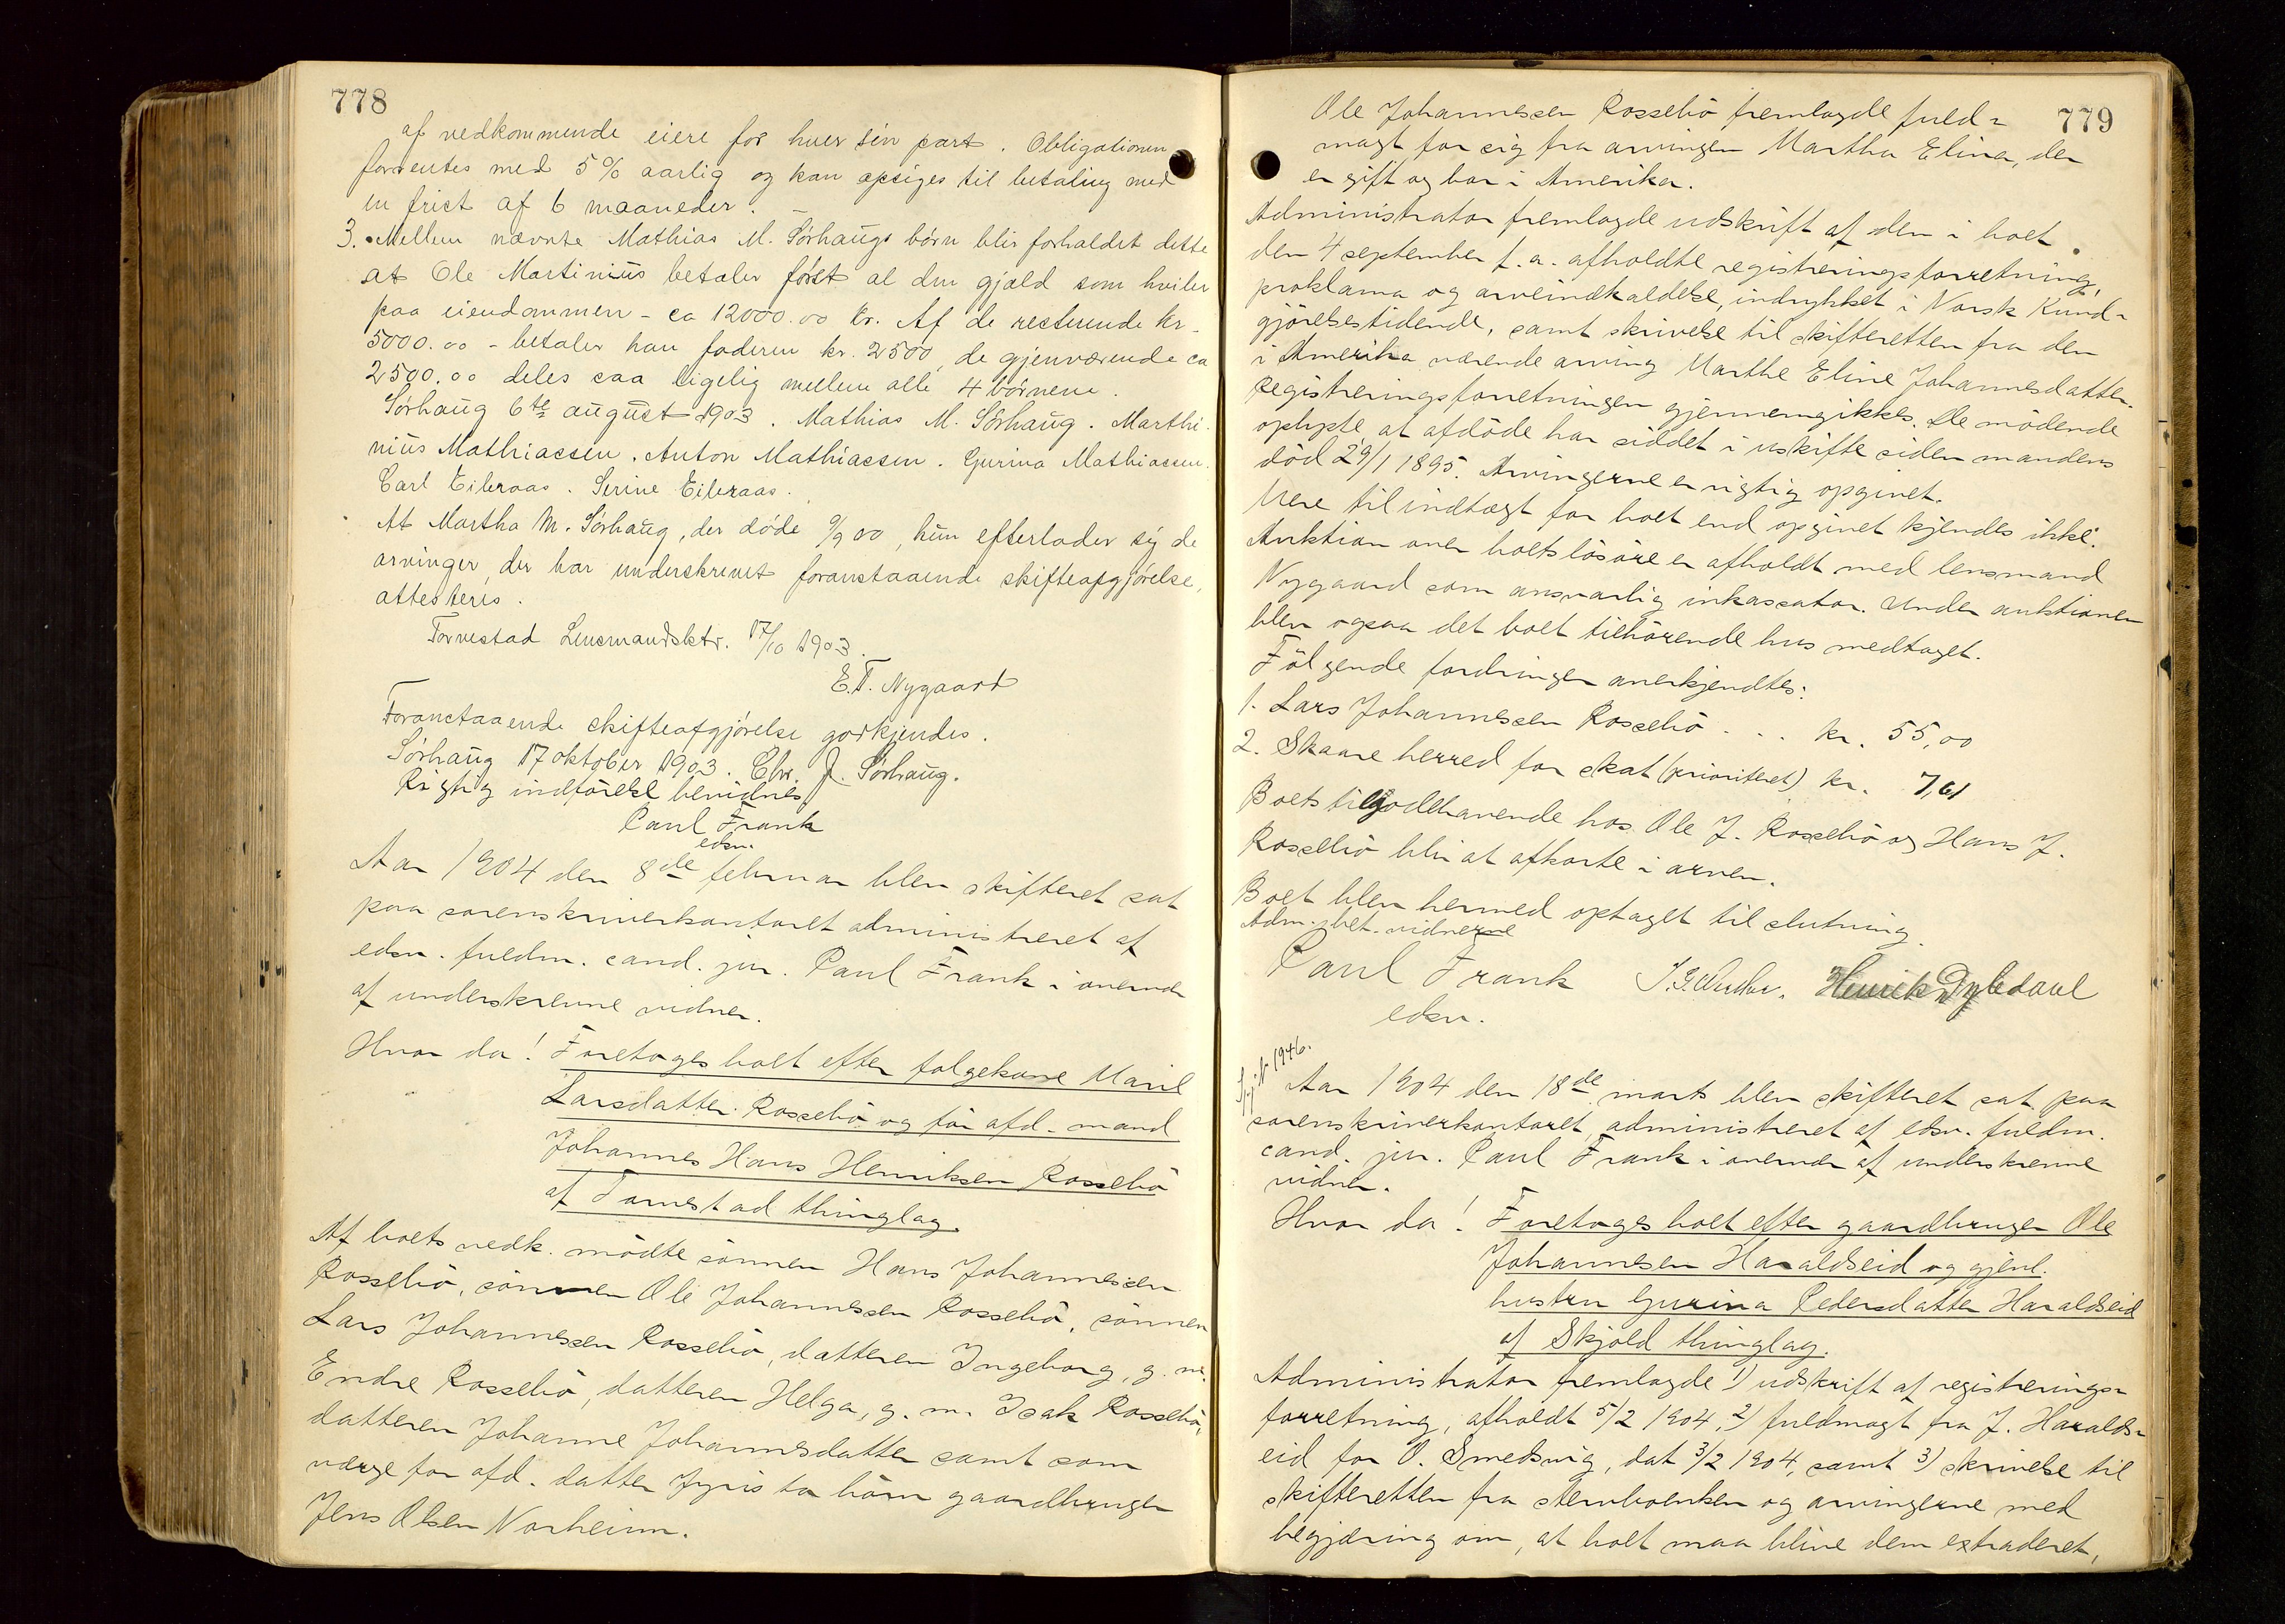 778
af vedkommende eiere for hver sin part. Obligationen
forrentes med 5% aarlig og kan opsiges til betaling med
en frist af 6 maaneder. –
3. Mellem nævnte Mathias M. Sörhaugs börn blir forholdet dette
at Ole Martinius betaler först al den gjæld som hviler
paa eiendommen - ca 12000.00 kr. Af de resterende kr.
5000.00 - betaler han faderen kr. 2500, de gjenværende ca
2500.00 deles saa ligelig mellem alle 4 börnene.
Sörhaug 6te august 1903. Mathias M. Sörhaug. Marthi-
nius Mathiassen. Anton Mathiassen. Gurina Mathiassen.
Carl Eikeraas. Serine Eikeraas.
At Martha M. Sörhaug, der döde 9/9 00, hun efterlader sig de
arvinger, der har underskrevet foranstaaende skifteafgjörelse,
attesteres.
Torvestad Lensmandsktr. 17/10 1903.
E.T. Nygaard
Foranstaaende skifteafgjörelse godkjendes.
Sörhaug 17 oktober 1903. Chr. J. Sörhaug.
Rigtig indförelse bevidnes
Paul Frank
edsv.
Aar 1904 den 8de februar blev skifteret sat
paa sorenskriverkontoret administreret af
edsv. fuldm. cand. jur. Paul Frank i overvær
af underskrevne vidner.
Hvor da! Foretoges boet efter folgekone Maril
Larsdatter Rossebö og för afd. mand
Johannes Hans Henriksen Rossebö
af Torvestad thinglag.
Af boets vedk. mödte sönnen Hans Johannessen
Rossebö, sönnen Ole Johannessen Rossebö, sönnen
Lars Johannessen Rossebö, datteren Ingeborg, g. m.
Endre Rossebö, datteren Helga, g. m. Isak Rossebö,
datteren Johanne Johannesdatter samt som
værge for afd. datter börn gaardbruger
Jens Olsen Norheim.
779
Ole Johannessen Rossebö fremlagde fuld-
magt for sig fra arvingen Martha Elina, der
er gift og bor i Amerika.
Administrator fremlagde udskrift af den i boet
den 4 september f. a. afholdte registreringsforretning,
proklama og arveindkaldelse, indrykket i Norsk Kund-
gjörelsestidende, samt skrivelse til skifteretten fra den
i Amerika værende arving Marthe Eline Johannesdatter.
Registreringsforretningen gjennemgikkes. De mödende
oplyste, at afdöde har siddet i uskifte siden mandens
död 29/1 1895. Arvingerne er rigtig opgivet.
Mere til indtægt for boet end opgivet kjendes ikke.
Auktion over boets lösöre er afholdt med lensmand
Nygaard som ansvarlig inkassator. Under auktionen
blev ogsaa det boet tilhörende hus medtaget.
Fölgende fordringer anerkjendtes:
1. Lars Johannessen Rossebö . . . kr. 55,00
2. Skaare herred for skat (prioriteret) kr. 7,61
Boets tilgodehavende hos Ole J. Rossebö og Hans J.
Rossebö blir at afkorte i arven.
Boet blev hermed optaget til slutning.
Adm. bet. vidnerne
Paul Frank Henrik Dybdahl
edsv.
1946.
Aar 1904 den 18de marts blev skifteret sat paa
sorenskriverkontoret, administreret af edsv. fuldm.
cand. jur. Paul Frank i overvær af underskrevne
vidner.
Hvor da! Foretoges boet efter gaardbruger Ole
Johannesen Haraldseid og gjenl.
hustru Gurina Pedersdatter Haraldseid
af Skjold thinglag.
Administrator fremlagde 1) udskrift af registrerings-
forretning, afholdt 5/2 1904, 2) fuldmagt fra J. Haralds-
eid for O. Smedsvig, dat 3/2 1904, samt 3) skrivelse til
skifteretten fra stervboenken og arvingerne med
begjæring om, at boet maa blive dem extraderet,